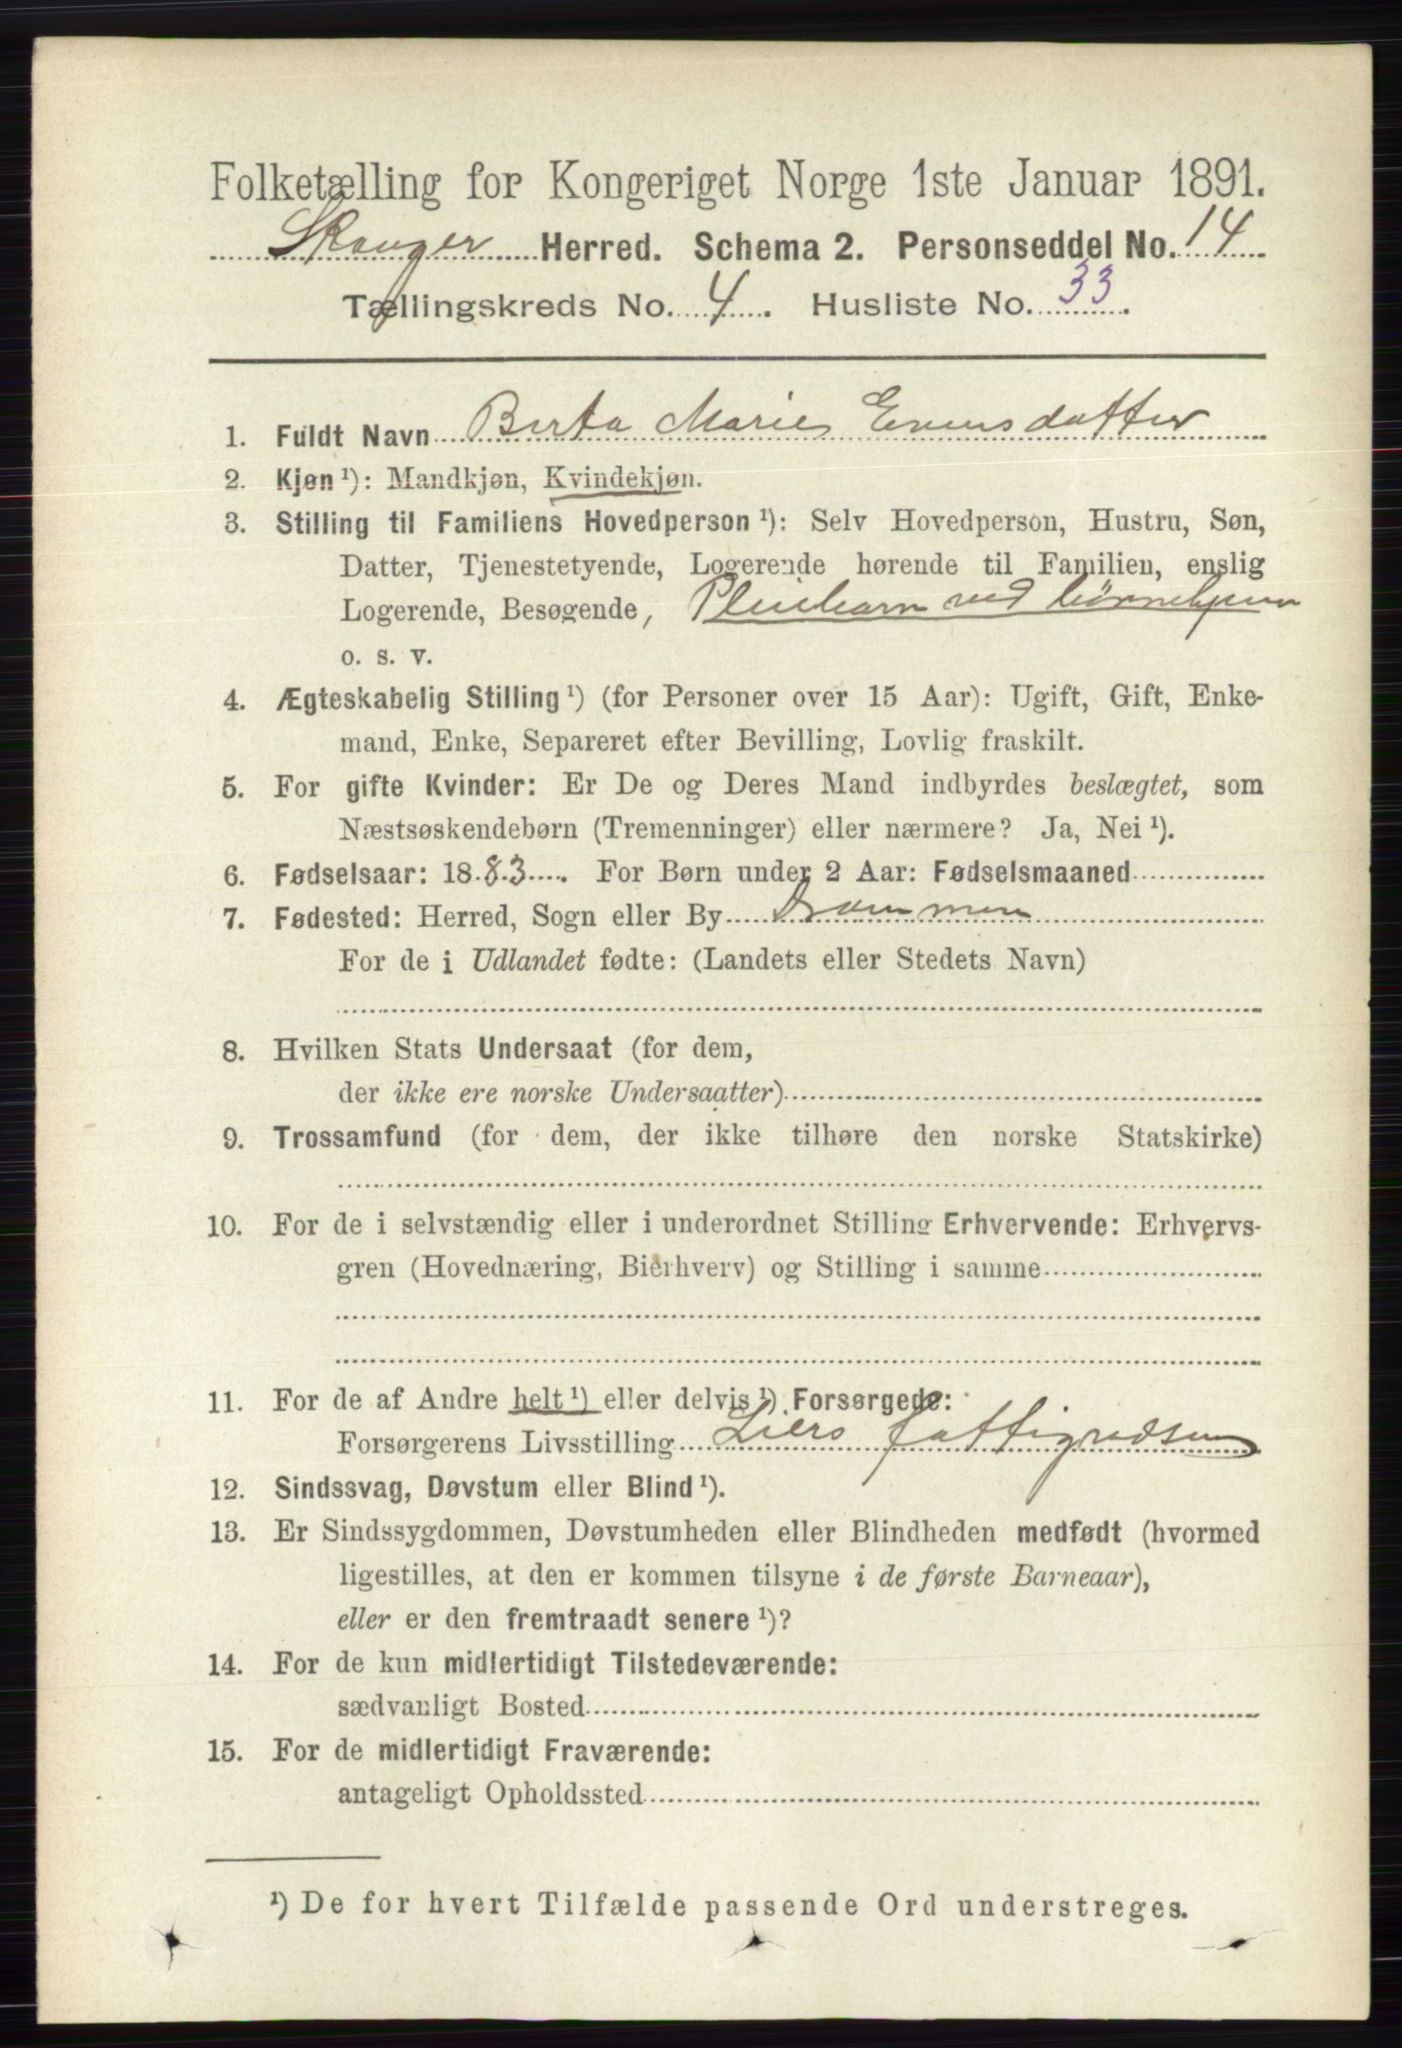 Folketælling for Kongeriget Norge 1ste Januar 1891.
Skouger Herred. Schema 2. Personseddel No. 14
Tællingskreds No. 4. Husliste No. 33.
1. Fuldt Navn Berta Marie Evensdatter
2. Kjøn ¹): Mandkjøn, Kvindekjøn.
3. Stilling til Familiens Hovedperson ¹): Selv Hovedperson, Hustru, Søn,
Datter, Tjenestetyende, Logerende hørende til Familien, enslig
Logerende, Besøgende, Pleiebarn ved børnehjem
o. s. v.
4. Ægteskabelig Stilling ¹) (for Personer over 15 Aar): Ugift, Gift, Enke-
mand, Enke, Separeret efter Bevilling, Lovlig fraskilt.
5. For gifte Kvinder: Er De og Deres Mand indbyrdes beslægtet, som
Næstsøskendebørn (Tremenninger) eller nærmere? Ja, Nei ¹).
6. Fødselsaar: 1883. For Børn under 2 Aar: Fødselsmaaned
7. Fødested: Herred, Sogn eller By Drammen
For de i Udlandet fødte: (Landets eller Stedets Navn)
8. Hvilken Stats Undersaat (for dem,
der ikke ere norske Undersaatter)
9. Trossamfund (for dem, der ikke tilhøre den norske Statskirke)
10. For de i selvstændig eller i underordnet Stilling Erhvervende: Erhvervs-
gren (Hovednæring, Bierhverv) og Stilling i samme
11. For de af Andre helt ¹) eller delvis ¹) Forsørgede:
Forsørgerens Livsstilling Liers fattigvæsen
12. Sindssvag, Døvstum eller Blind ¹).
13. Er Sindssygdommen, Døvstumheden eller Blindheden medfødt (hvormed
ligestilles, at den er kommen tilsyne i de første Barneaar),
eller er den fremtraadt senere ¹)?
14. For de kun midlertidigt Tilstedeværende:
sædvanligt Bosted
15. For de midlertidigt Fraværende:
antageligt Opholdssted
¹) De for hvert Tilfælde passende Ord understreges.